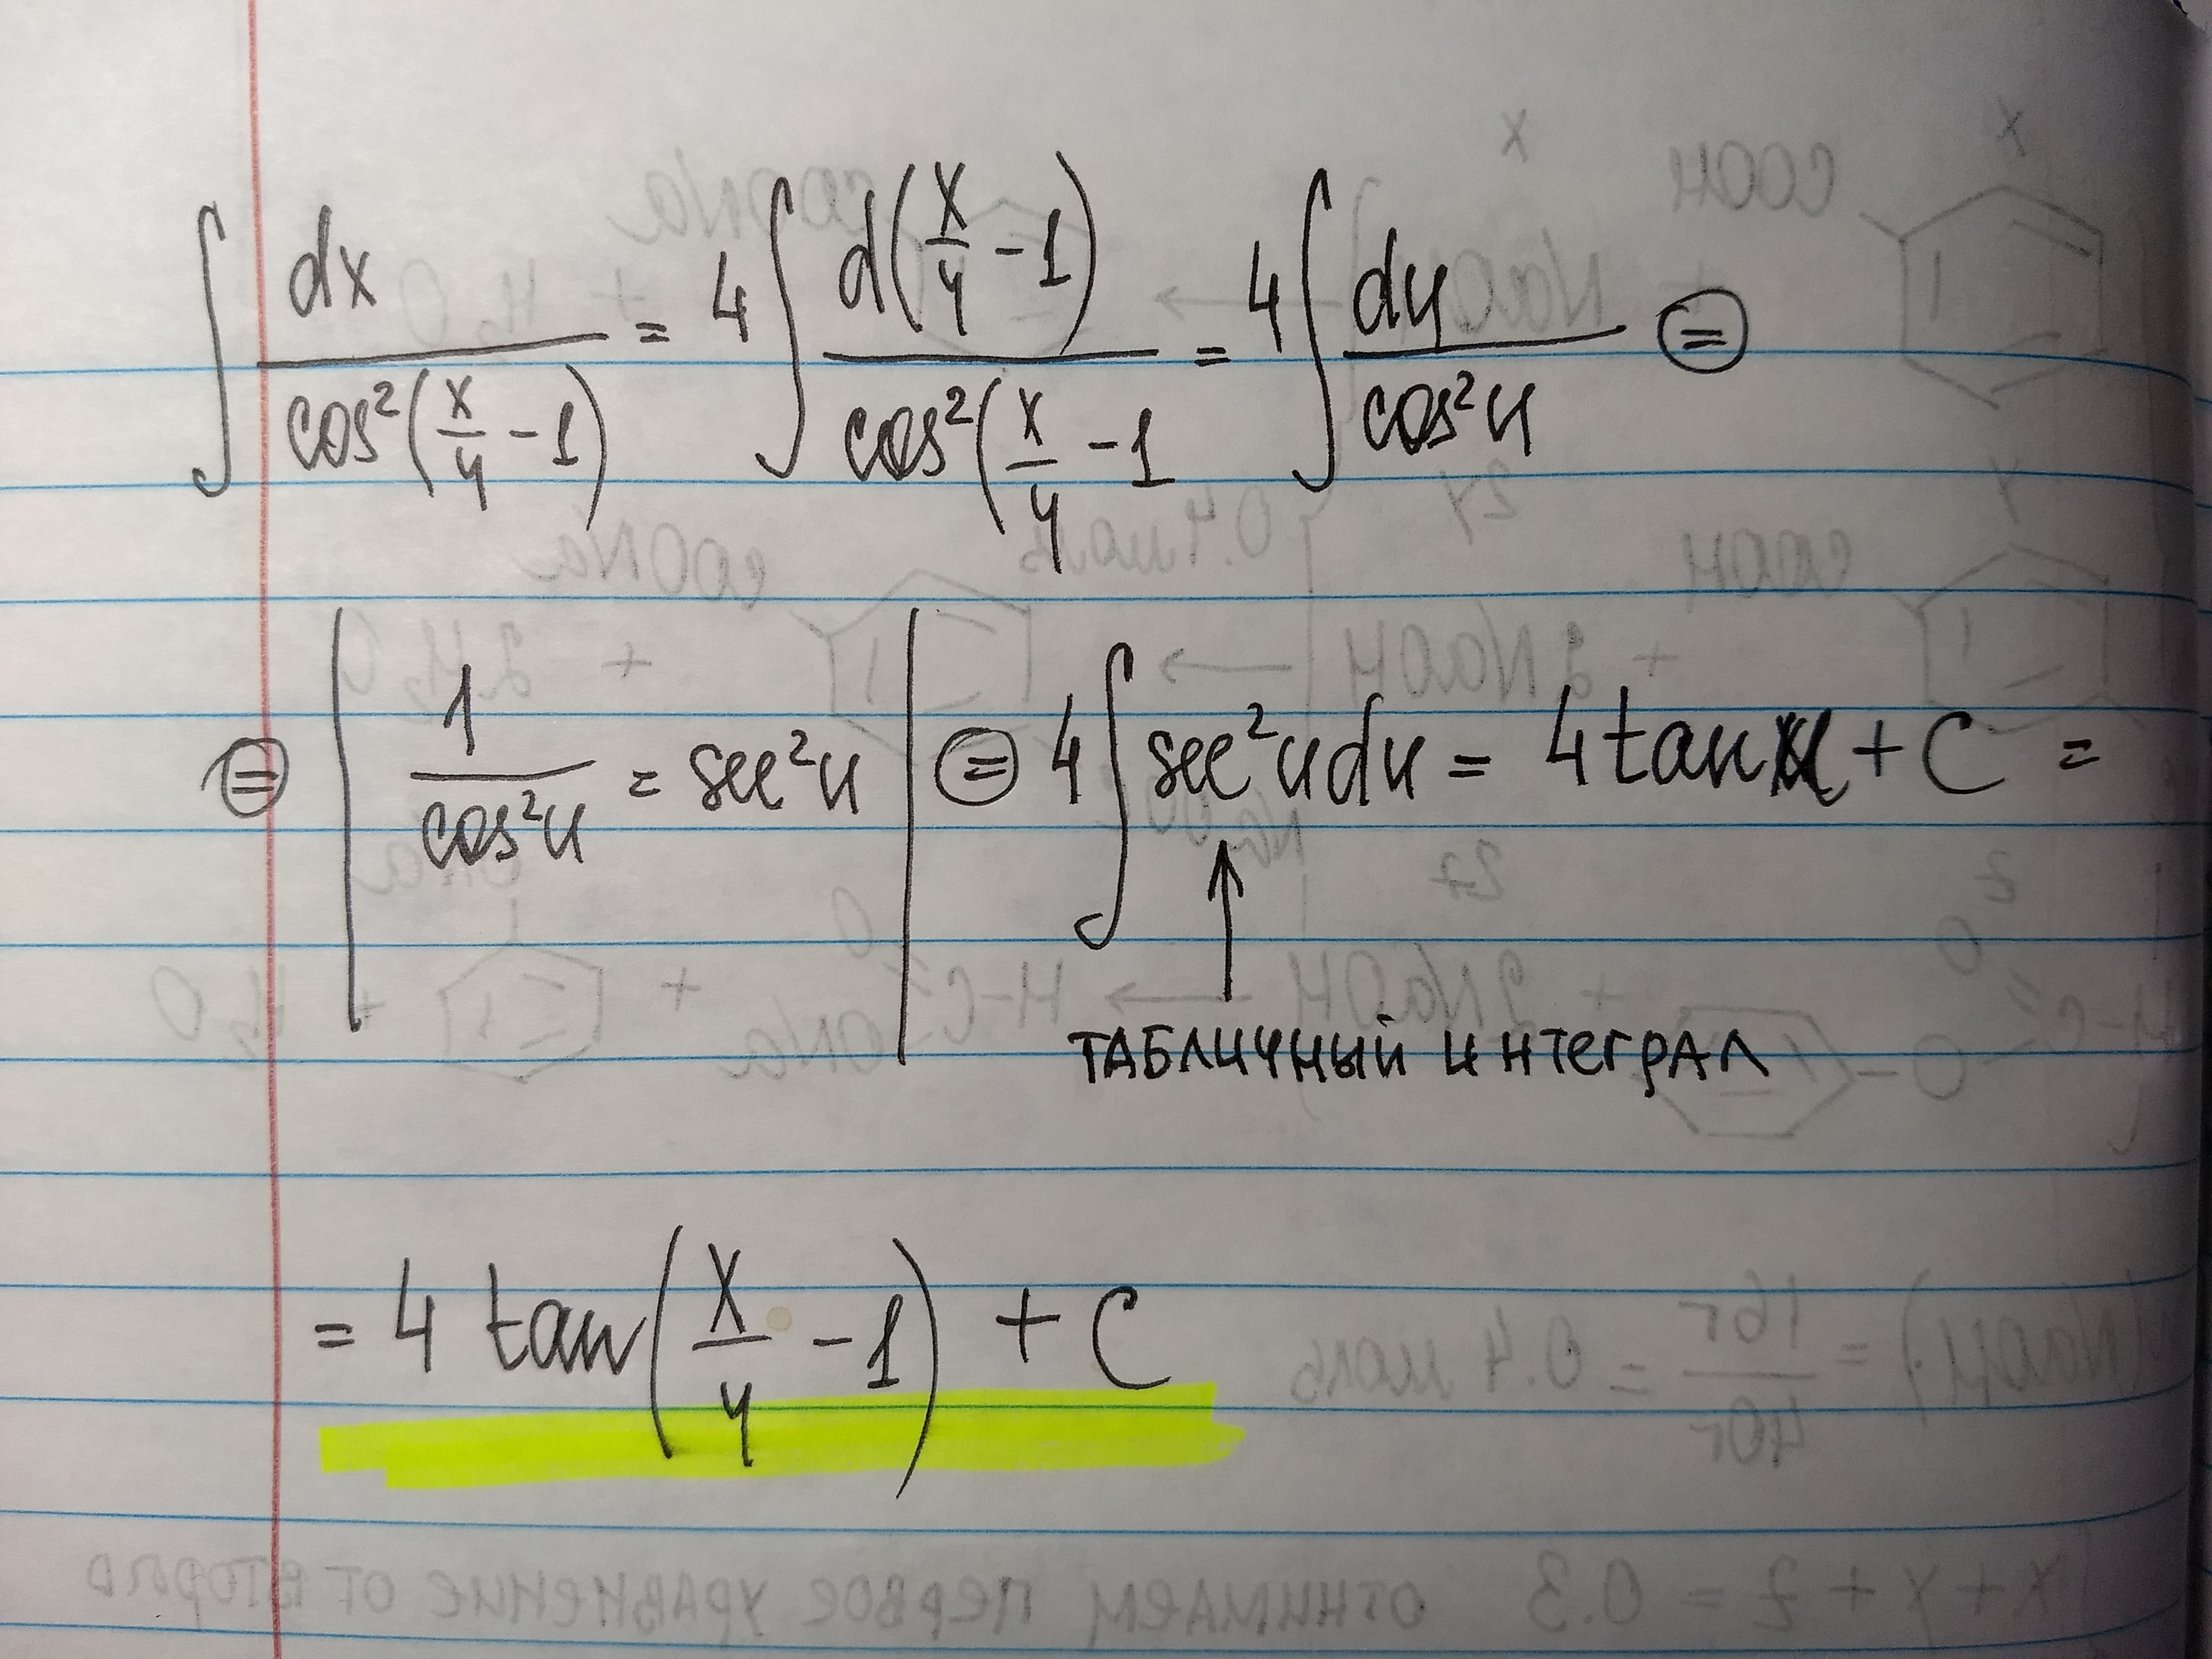 ∫ dx / cos²(x/4 - 1) = 4 ∫ d(x/4 - 1) / cos²(x/4 - 1 = 4 ∫ du / cos²u ⊜
⊜ | 1 / cos²u = sec²u | ⊜ 4 ∫ sec²u du = 4 tan u + C =
ТАБЛИЧНЫЙ ИНТЕГРАЛ
= 4 tan(x/4 - 1) + C